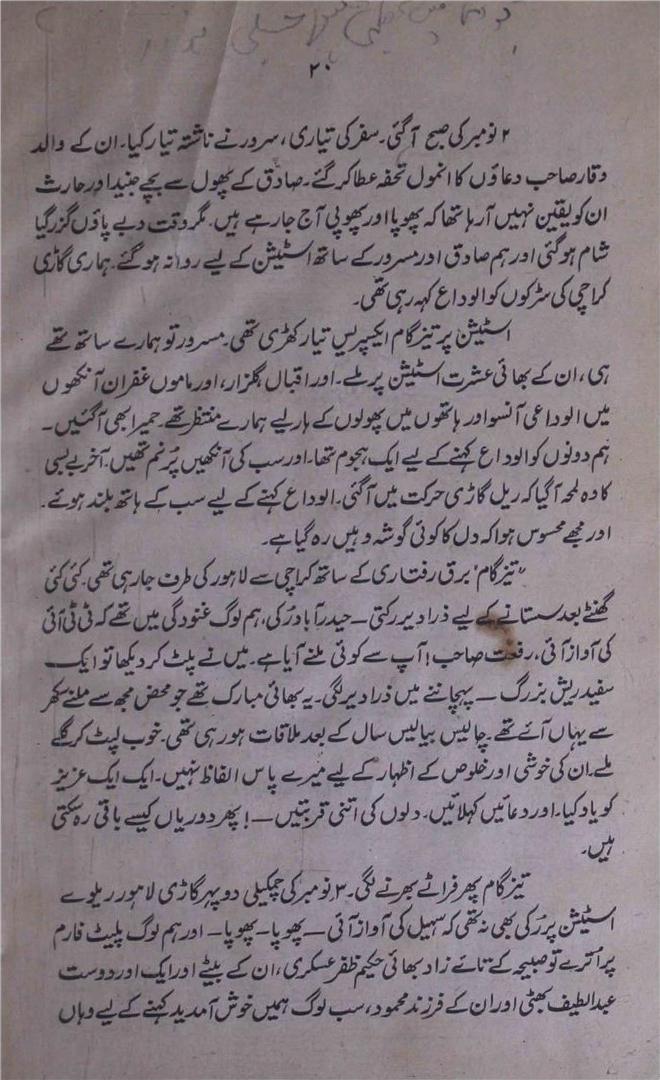 ۲۰
۲ نومبر کی صبح آگئی۔ سفر کی تیاری، سرور نے ناشتہ تیار کیا۔ ان کے والد
وقار صاحب دعاؤں کا انمول تحفہ عطا کر گئے۔ صادق کے پھول سے بچے جنید اور حارث
ان کو یقین نہیں آرہا تھا کہ پھوپا اور پھوپی آج جارہے ہیں۔ مگر وقت دبے پاؤں گزر گیا
شام ہوگئی اور ہم صادق اور مسرور کے ساتھ اسٹیشن کے لیے روانہ ہو گئے۔ ہماری گاڑی
کراچی کی سڑکوں کو الوداع کہہ رہی تھی۔
اسٹیشن پر تیز گام ایکسپریس تیار کھڑی تھی۔ مسرور تو ہمارے ساتھ تھے
ہی، ان کے بھائی عشرت اسٹیشن پر ملے۔ اور اقبال، گلزار، اور ماموں غفران آنکھوں
میں الوداعی آنسو اور ہاتھوں میں پھولوں کے ہار لیے ہمارے منتظر تھے۔ حمیرا بھی آگئیں۔
ہم دونوں کو الوداع کہنے کے لیے ایک ہجوم تھا۔ اور سب کی آنکھیں پُرنم تھیں۔ آخر بے بسی
کا وہ لمحہ آگیا کہ ریل گاڑی حرکت میں آگئی۔ الوداع کہنے کے لیے سب کے ہاتھ بلند ہوئے۔
اور مجھے محسوس ہوا کہ دل کا کوئی گوشہ وہیں رہ گیا ہے۔
"تیز گام" برق رفتاری کے ساتھ کراچی سے لاہور کی طرف جارہی تھی۔ کئی کئی
گھنٹے بعد سستانے کے لیے ذرا دیر رکتی — حیدرآباد رُکی، ہم لوگ غنودگی میں تھے کہ ٹی ٹی آئی
کی آواز آئی، رفعت صاحب! آپ سے کوئی ملنے آیا ہے۔ میں نے پلٹ کر دیکھا تو ایک
سفید ریش بزرگ — پہچاننے میں ذرا دیر لگی۔ یہ بھائی مبارک تھے جو محض مجھ سے ملنے سکھر
سے یہاں آئے تھے۔ چالیس بیالیس سال کے بعد ملاقات ہو رہی تھی۔ خوب لپٹ کر گلے
ملے۔ ان کی خوشی اور خلوص کے اظہار کے لیے میرے پاس الفاظ نہیں۔ ایک ایک عزیز
کو یاد کیا۔ اور دعائیں کہلائیں۔ دلوں کی اتنی قربتیں — ! پھر دوریاں کیسے باقی رہ سکتی
ہیں۔
تیز گام پھر فراٹے بھرنے لگی۔ ۳ نومبر کی چمکیلی دوپہر گاڑی لاہور ریلوے
اسٹیشن پر رُکی بھی نہ تھی کہ سہیل کی آواز آئی — پھوپا — پھوپا — اور ہم لوگ پلیٹ فارم
پر اُترے تو صبیحہ کے تائے زاد بھائی حکیم ظفر عسکری، ان کے بیٹے اور ایک اور دوست
عبداللطیف بھٹی اور ان کے فرزند محمود، سب لوگ ہمیں خوش آمدید کہنے کے لیے وہاں